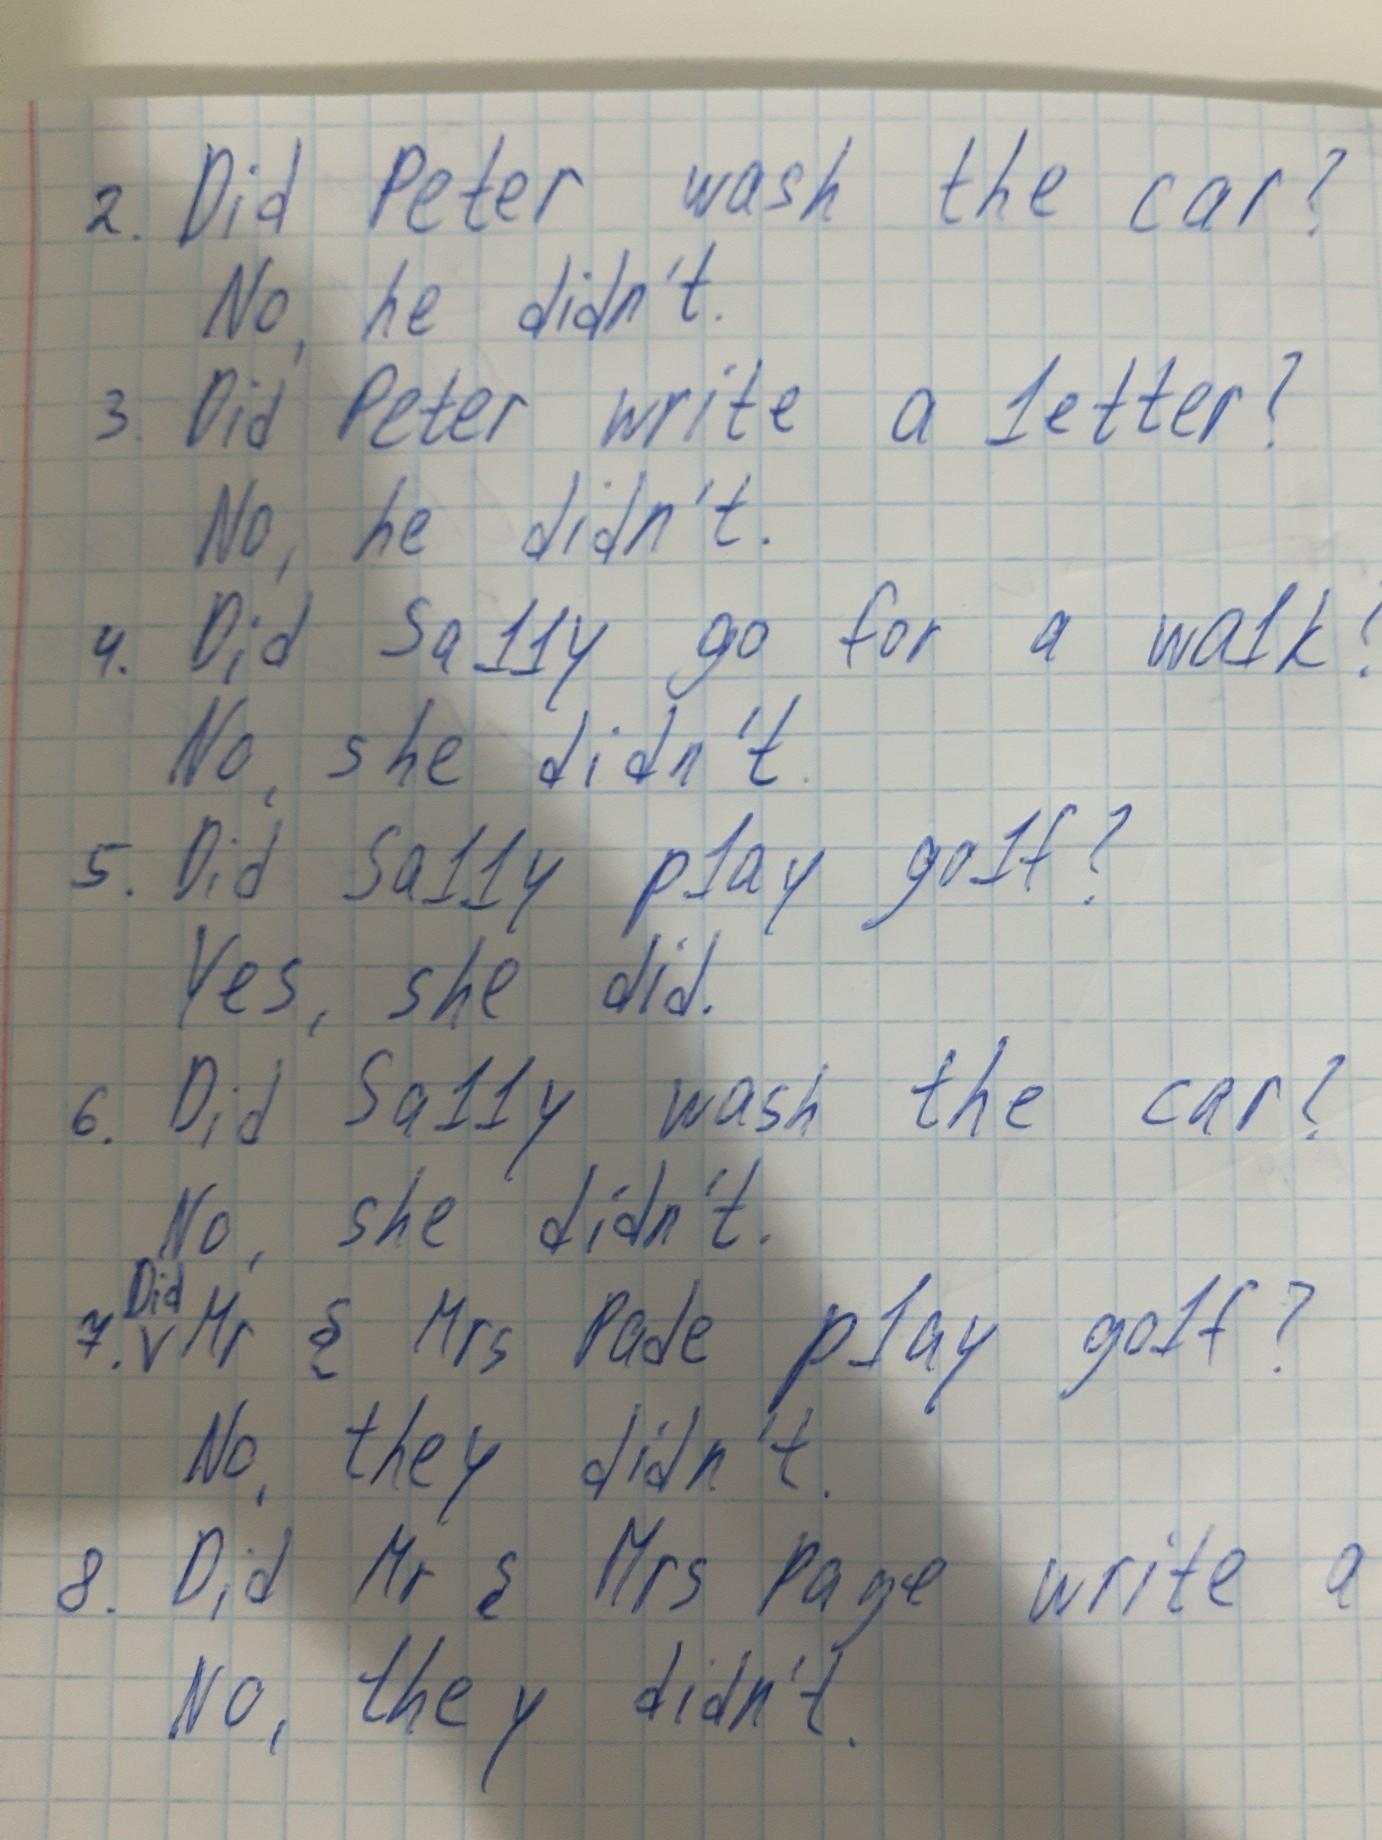 2. Did Peter wash the car?
No, he didn't.
3. Did Peter write a letter?
No, he didn't.
4. Did Sally go for a walk?
No, she didn't.
5. Did Sally play golf?
Yes, she did.
6. Did Sally wash the car?
No, she didn't.
7. Did Mr & Mrs Pade play golf?
No, they didn't.
8. Did Mr & Mrs Page write a
No, they didn't.